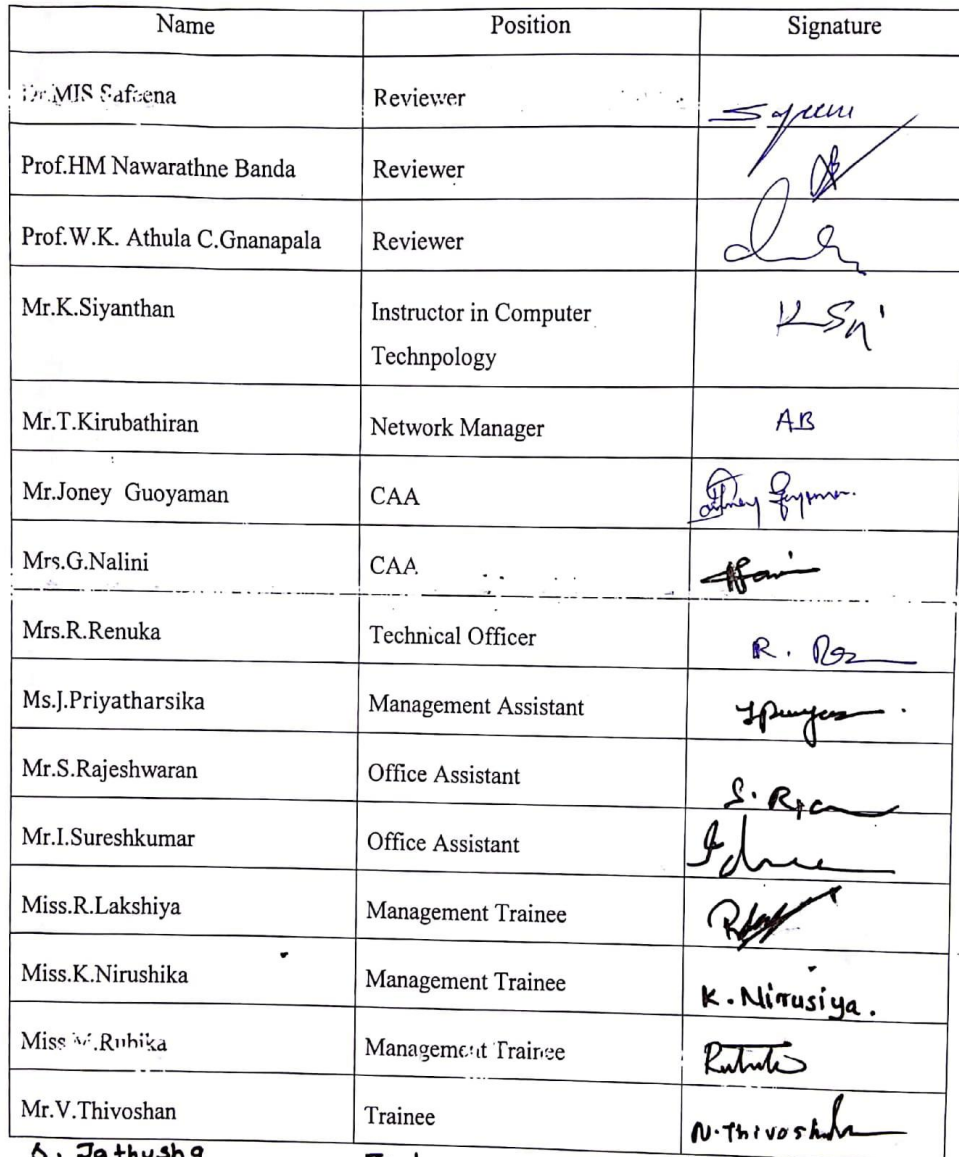 Name Position Signature
Dr.MIS Safeena Reviewer
Prof.HM Nawarathne Banda Reviewer
Prof.W.K. Athula C.Gnanapala Reviewer
Mr.K.Siyanthan Instructor in Computer
Technpology
Mr.T.Kirubathiran Network Manager AB
Mr.Joney Guoyaman CAA
Mrs.G.Nalini CAA
Mrs.R.Renuka Technical Officer R.
Ms.J.Priyatharsika Management Assistant
Mr.S.Rajeshwaran Office Assistant S.
Mr.I.Sureshkumar Office Assistant
Miss.R.Lakshiya Management Trainee
Miss.K.Nirushika Management Trainee K. Nirrusiya.
Miss M.Rubika Management Trainee
Mr.V.Thivoshan Trainee
Jathusha